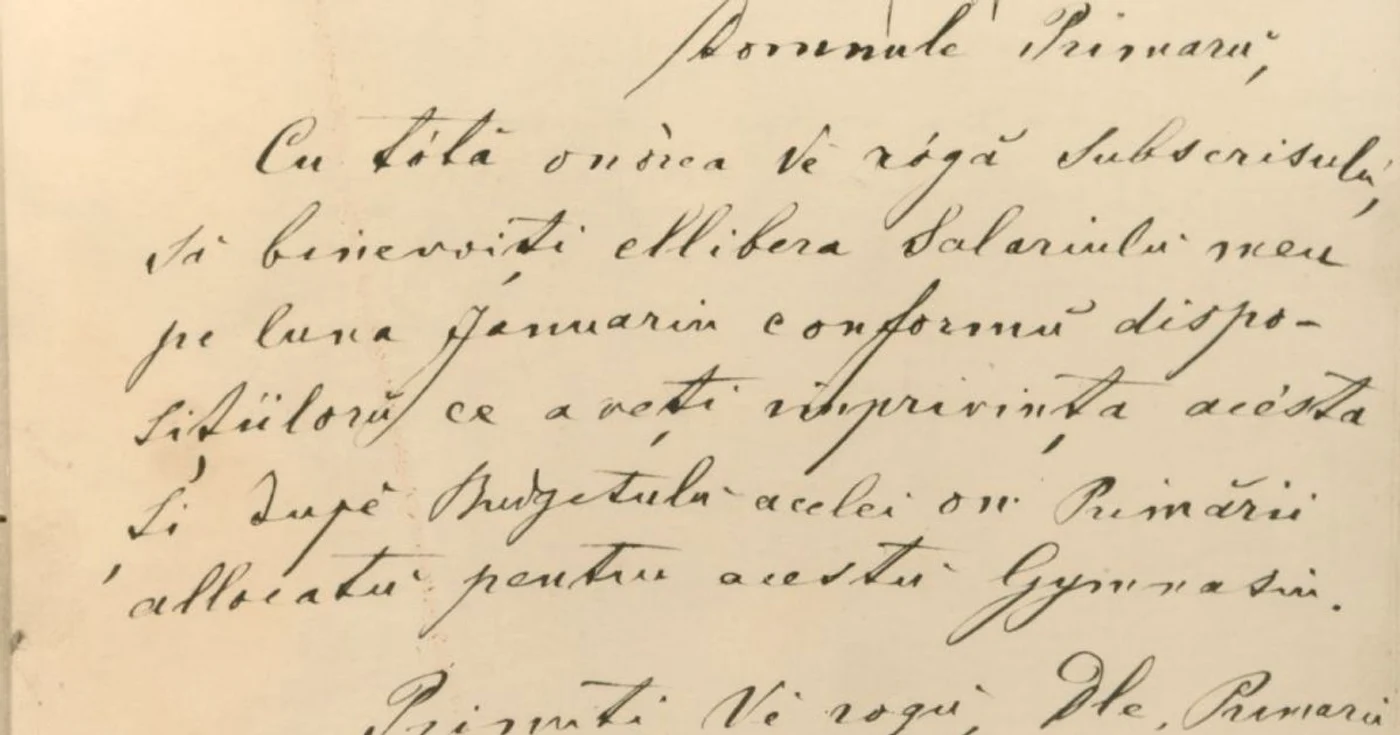 Domnule Primarŭ,
Cu tótă onórea Vĕ rógă subscrisulŭ,
să binevoiți ellibera Salariulŭ meu
pe luna Januariu conformŭ dispo-
sițiilorŭ ce aveți imprivința acésta
și dupĕ Budgetulŭ acelei on. Primării
allocatŭ pentru acestŭ Gymnasiu.
Primiți Vĕ rogŭ, Dle, Primarŭ